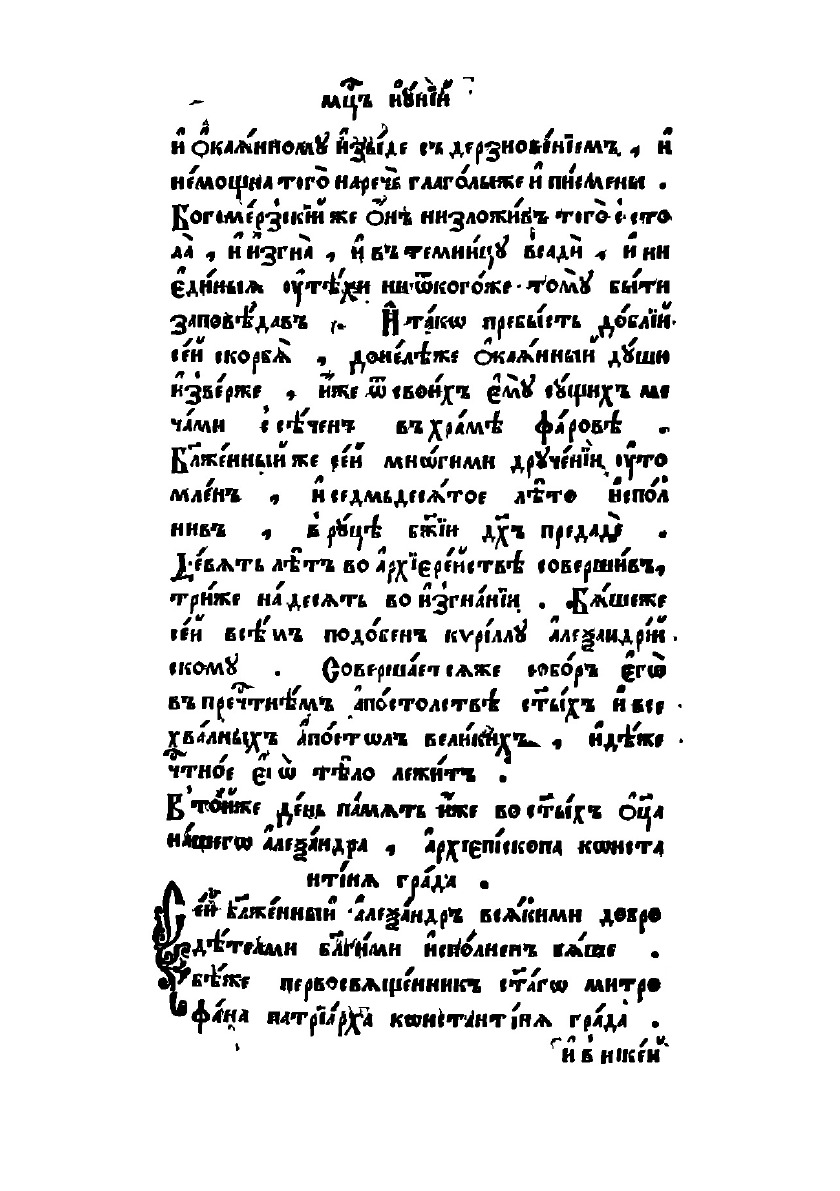 мц҃ъ іꙋ́нїй
и҆ ѻ҆каѧ́нномꙋ и҆зы́де съ дерзнове́нїемъ , и҆
не́мощна того̀ наречѐ глаго́лыже и҆ пи́смены .
Богоме́рзскїй же ѻ҆́нъ низложи́въ того̀ с̾ сто
ла̀ , и҆ и҆згна̀ , и҆ в̾ темни́цꙋ всадѝ , и҆ ни
є҆ди́ныѧ ᲂу҆тѣ́хи ни ѿ кого́же томꙋ̀ бы́ти
заповѣ́давъ . И҆ та́кѡ пребы́сть до́блїй
се́й скорбѧ̀ , до́нелѣ́же ѻ҆каѧ́нный дꙋ́шꙋ
и҆зве́рже , и҆́же ѿ свои́хъ є҆мꙋ̀ сꙋ́щихъ ме
ча́ми с̾сѣ́ченъ въ хра́мѣ фа́ровѣ .
Бл҃же́нный же се́й мнѡ́гими дрꙋче́нїи ᲂу҆то
мле́нъ , и҆ седмьдесѧ́тое лѣ́то и҆спо́л
нивъ , в̾ рꙋ́цѣ бж҃їи дх҃ъ предадѐ .
Де́вѧть лѣ́тъ во а҆рхїере́йствѣ соверши́въ,
три́же на́десѧть во и҆згна́нїи . Бѧ́шеже
се́й всѣ́мъ подо́бенъ кѷрі́ллꙋ а҆леѯандрі́й
скомꙋ . Соверша́етсѧже собо́ръ є҆гѡ̀
въ пречⷭ҇тнѣ́мъ а҆по́столствѣ ст҃ы́хъ и҆ все
хва́лныхъ а҆по́стѡлъ вели́кихъ , и҆дѣ́же
чⷭ҇тно́е є҆гѡ̀ тѣ́ло лежи́тъ .
В̾ то́йже де́нь па́мѧть и҆́же во ст҃ы́хъ ѻ҆ц҃а̀
на́шегѡ а҆леѯа́ндра , а҆рхїепі́скопа кѡнста
нті́нѧ гра́да .
Се́й бл҃же́нный а҆леѯа́ндръ всѧ́кими добро
дѣ́телми благи́ми и҆спо́лненъ бѧ́ше .
бѣ́же первосвѧще́нникъ ст҃а́гѡ митро
фа́на патрїа́рха кѡнстанті́нѧ гра́да .
и҆ в̾ нїке́й